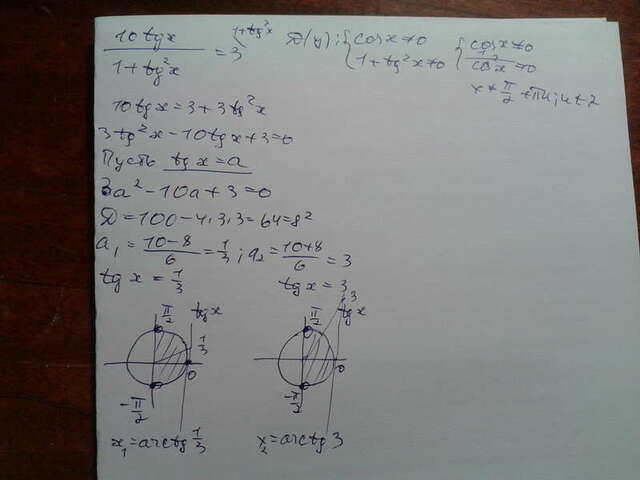 10tgx / 1+tg²x = 3 ^(1+tg²x
D(y): { cosx≠0 { cosx≠0
1+tg²x≠0 1/cos²x≠0
x≠π/2+πk; k∈Z
10tgx=3+3tg²x
3tg²x-10tgx+3=0
Пусть tgx=a
3a²-10a+3=0
D=100-4·3·3=64=8²
a₁=(10-8)/6=1/3; a₂=(10+8)/6=3
tgx=1/3 tgx=3
π/2 tgx π/2 3 tgx
1/3
0 0
-π/2 -π/2
x₁=arctg 1/3 x₂=arctg 3